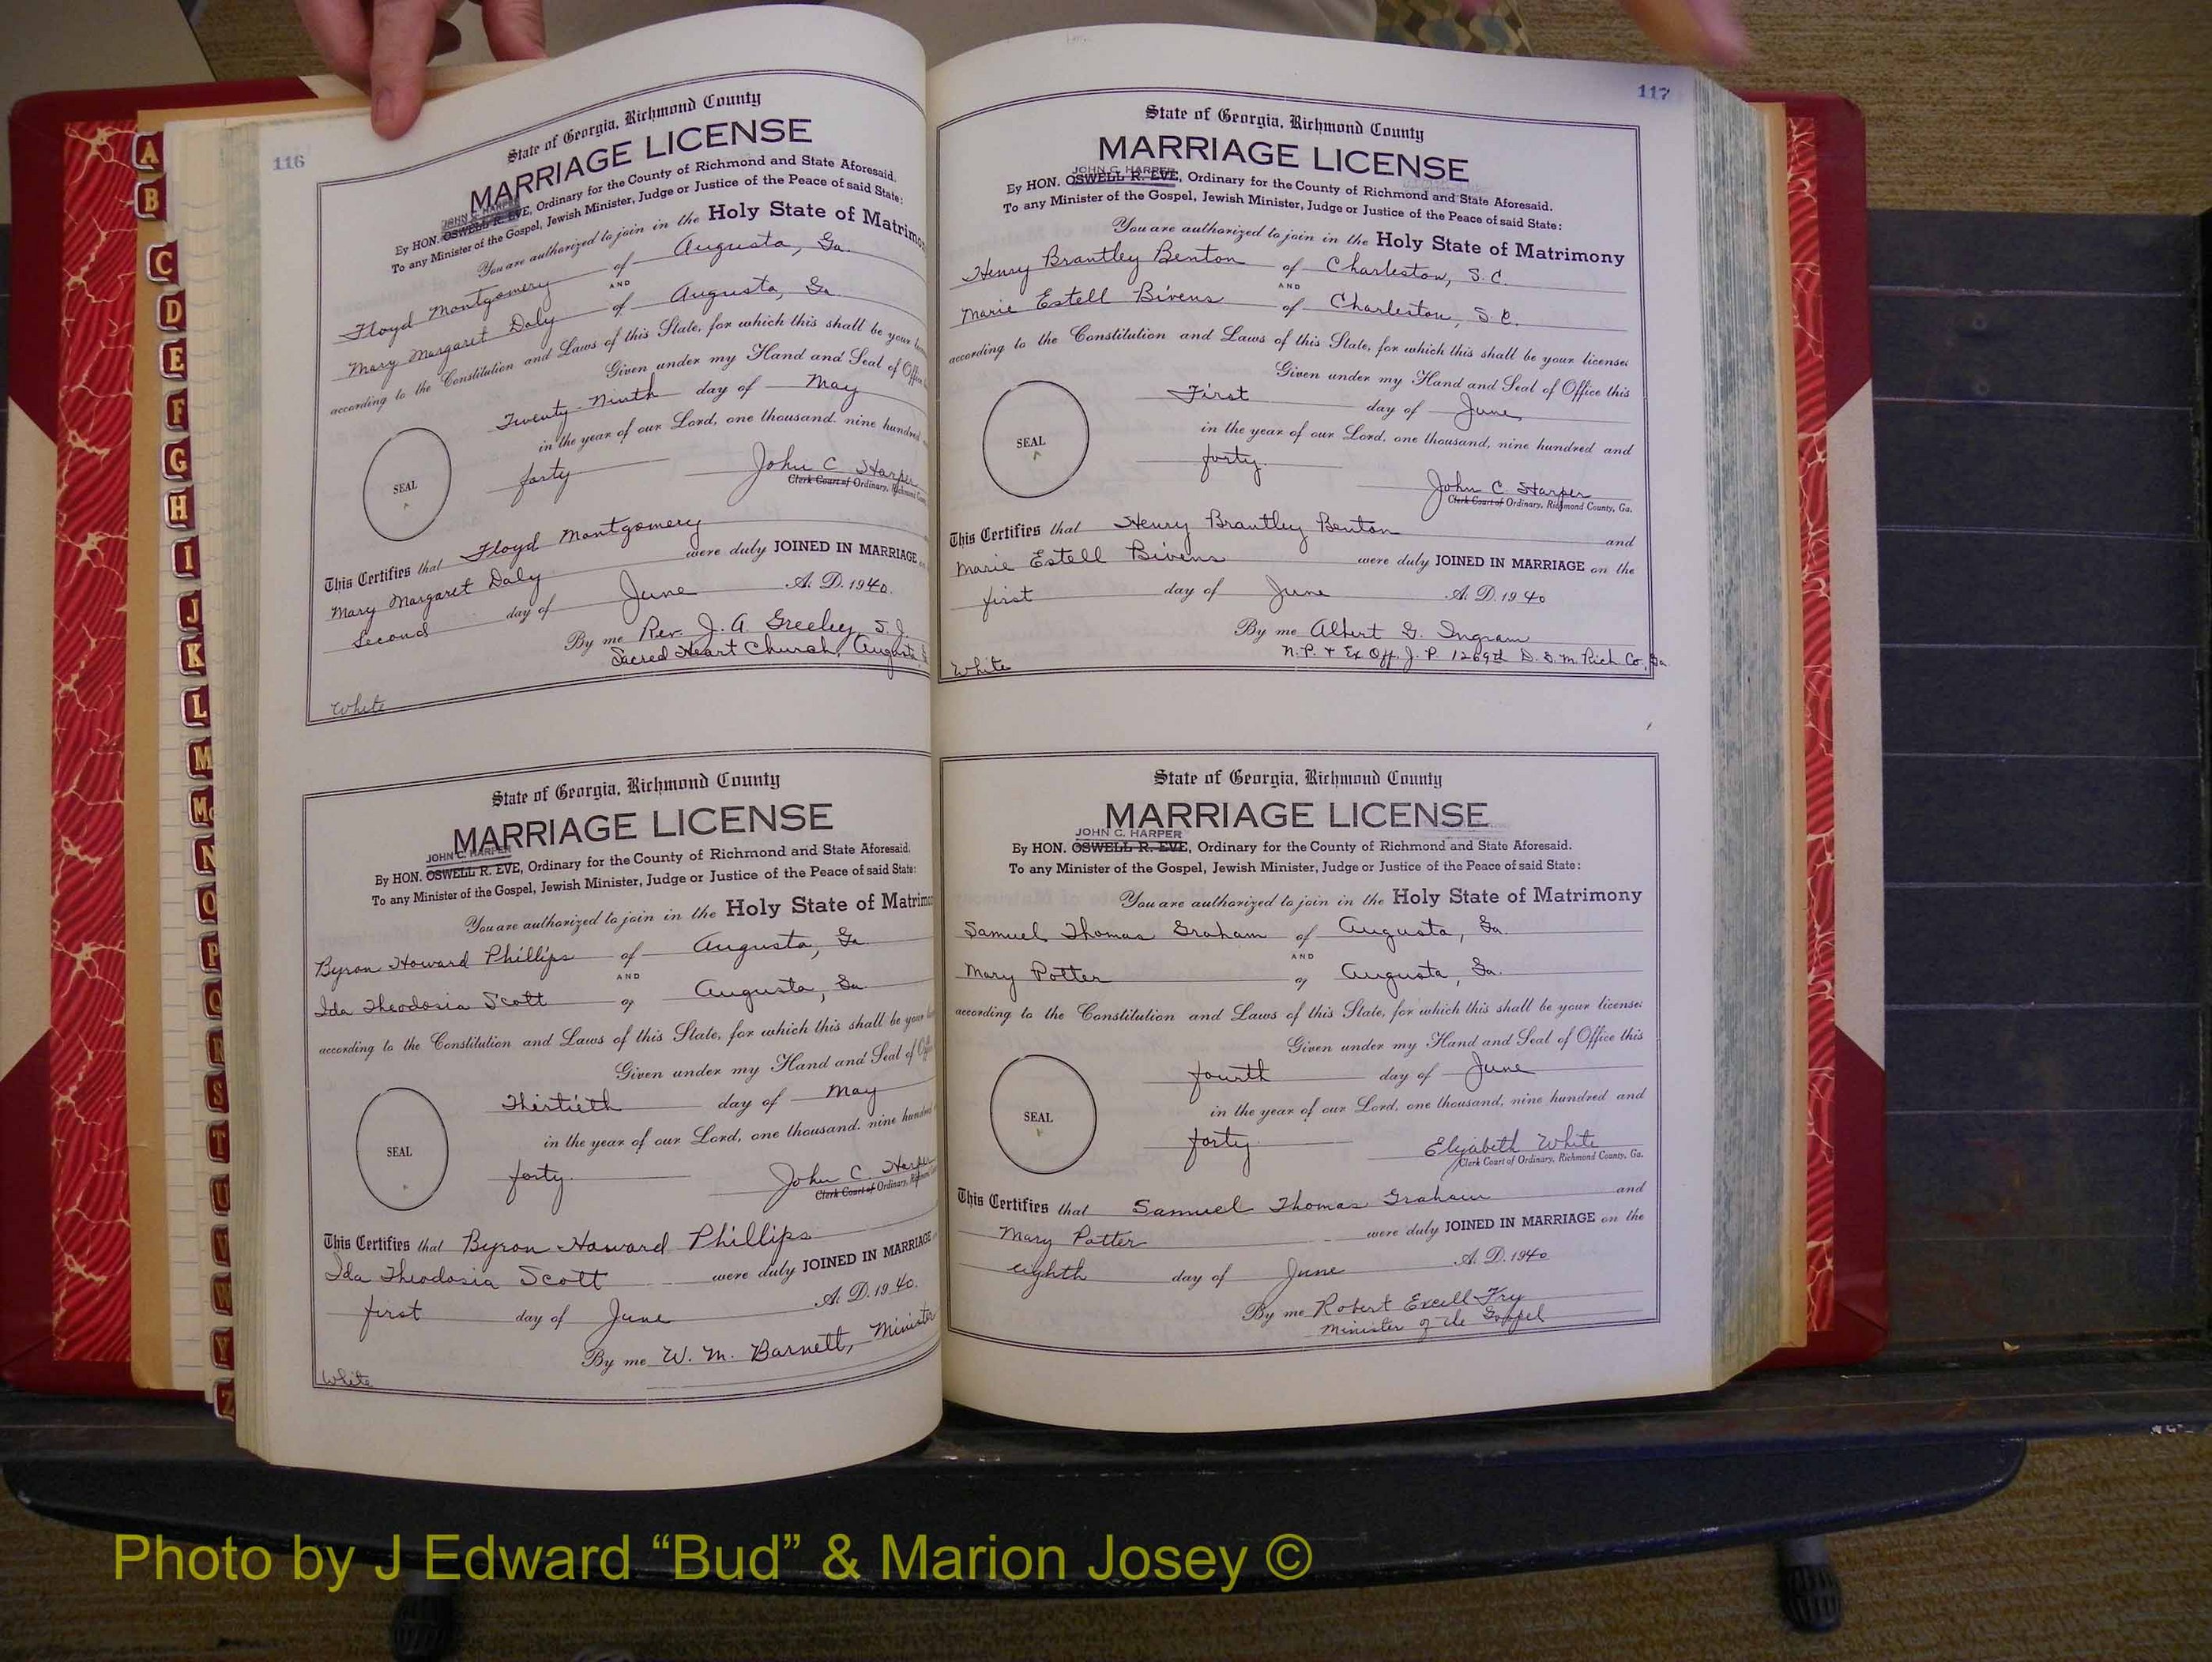 116
State of Georgia, Richmond County
MARRIAGE LICENSE
JOHN C. HARPER
By HON. OSWELL R. EVE, Ordinary for the County of Richmond and State Aforesaid.
To any Minister of the Gospel, Jewish Minister, Judge or Justice of the Peace of said State:
You are authorized to join in the Holy State of Matrimo
Floyd Montgomery of Augusta, Ga.
AND
Mary Margaret Daly of Augusta, Ga.
according to the Constitution and Laws of this State, for which this shall be your
Given under my Hand and Seal of Office
Twenty-Ninth day of May
in the year of our Lord, one thousand, nine hundred
SEAL
forty John C Harper
Clerk Court of Ordinary, Richmond
This Certifies that Floyd Montgomery
Mary Margaret Daly were duly JOINED IN MARRIAGE
Second day of June A. D. 1940.
By me Rev. J. A. Greeley, S. J.
Sacred Heart Church, Augusta
White
State of Georgia, Richmond County
MARRIAGE LICENSE
JOHN C. HARPER
By HON. OSWELL R. EVE, Ordinary for the County of Richmond and State Aforesaid.
To any Minister of the Gospel, Jewish Minister, Judge or Justice of the Peace of said State:
You are authorized to join in the Holy State of Matrimo
Byron Howard Phillips of Augusta, Ga.
AND
Ida Theodosia Scott of Augusta, Ga.
according to the Constitution and Laws of this State, for which this shall be your
Given under my Hand and Seal of
Thirtieth day of May
in the year of our Lord, one thousand, nine hundred
SEAL
forty. John C. Harper
Clerk Court of Ordinary,
This Certifies that Byron Howard Phillips
Ida Theodosia Scott were duly JOINED IN MARRIAGE
first day of June A. D. 1940.
By me W. M. Barnett, Minister
White
117
State of Georgia, Richmond County
MARRIAGE LICENSE
JOHN C. HARPER
By HON. OSWELL R. EVE, Ordinary for the County of Richmond and State Aforesaid.
To any Minister of the Gospel, Jewish Minister, Judge or Justice of the Peace of said State:
You are authorized to join in the Holy State of Matrimony
Henry Brantley Benton of Charleston, S.C.
AND
Marie Estell Bivens of Charleston, S.C.
according to the Constitution and Laws of this State, for which this shall be your license:
Given under my Hand and Seal of Office this
First day of June
in the year of our Lord, one thousand, nine hundred and
SEAL
forty.
John C. Harper
Clerk Court of Ordinary, Richmond County, Ga.
This Certifies that Henry Brantley Benton and
Marie Estell Bivens were duly JOINED IN MARRIAGE on the
first day of June A. D. 1940
By me Albert G. Ingram
N.P. & Ex Off. J. P. 1269th D. G. M. Rich Co., Ga.
White
State of Georgia, Richmond County
MARRIAGE LICENSE
JOHN C. HARPER
By HON. OSWELL R. EVE, Ordinary for the County of Richmond and State Aforesaid.
To any Minister of the Gospel, Jewish Minister, Judge or Justice of the Peace of said State:
You are authorized to join in the Holy State of Matrimony
Samuel Thomas Graham of Augusta, Ga.
AND
Mary Potter of Augusta, Ga.
according to the Constitution and Laws of this State, for which this shall be your license:
Given under my Hand and Seal of Office this
fourth day of June
in the year of our Lord, one thousand, nine hundred and
SEAL
forty.
Elizabeth White
Clerk Court of Ordinary, Richmond County, Ga.
This Certifies that Samuel Thomas Graham and
Mary Potter were duly JOINED IN MARRIAGE on the
eighth day of June A. D. 1940
By me Robert Excell Fry
Minister of the Gospel
A
B
C
D
E
F
G
H
I
J
K
L
M
Mc
N
O
P
Q
R
S
T
U
V
W
Y
Z
Photo by J Edward “Bud” & Marion Josey ©